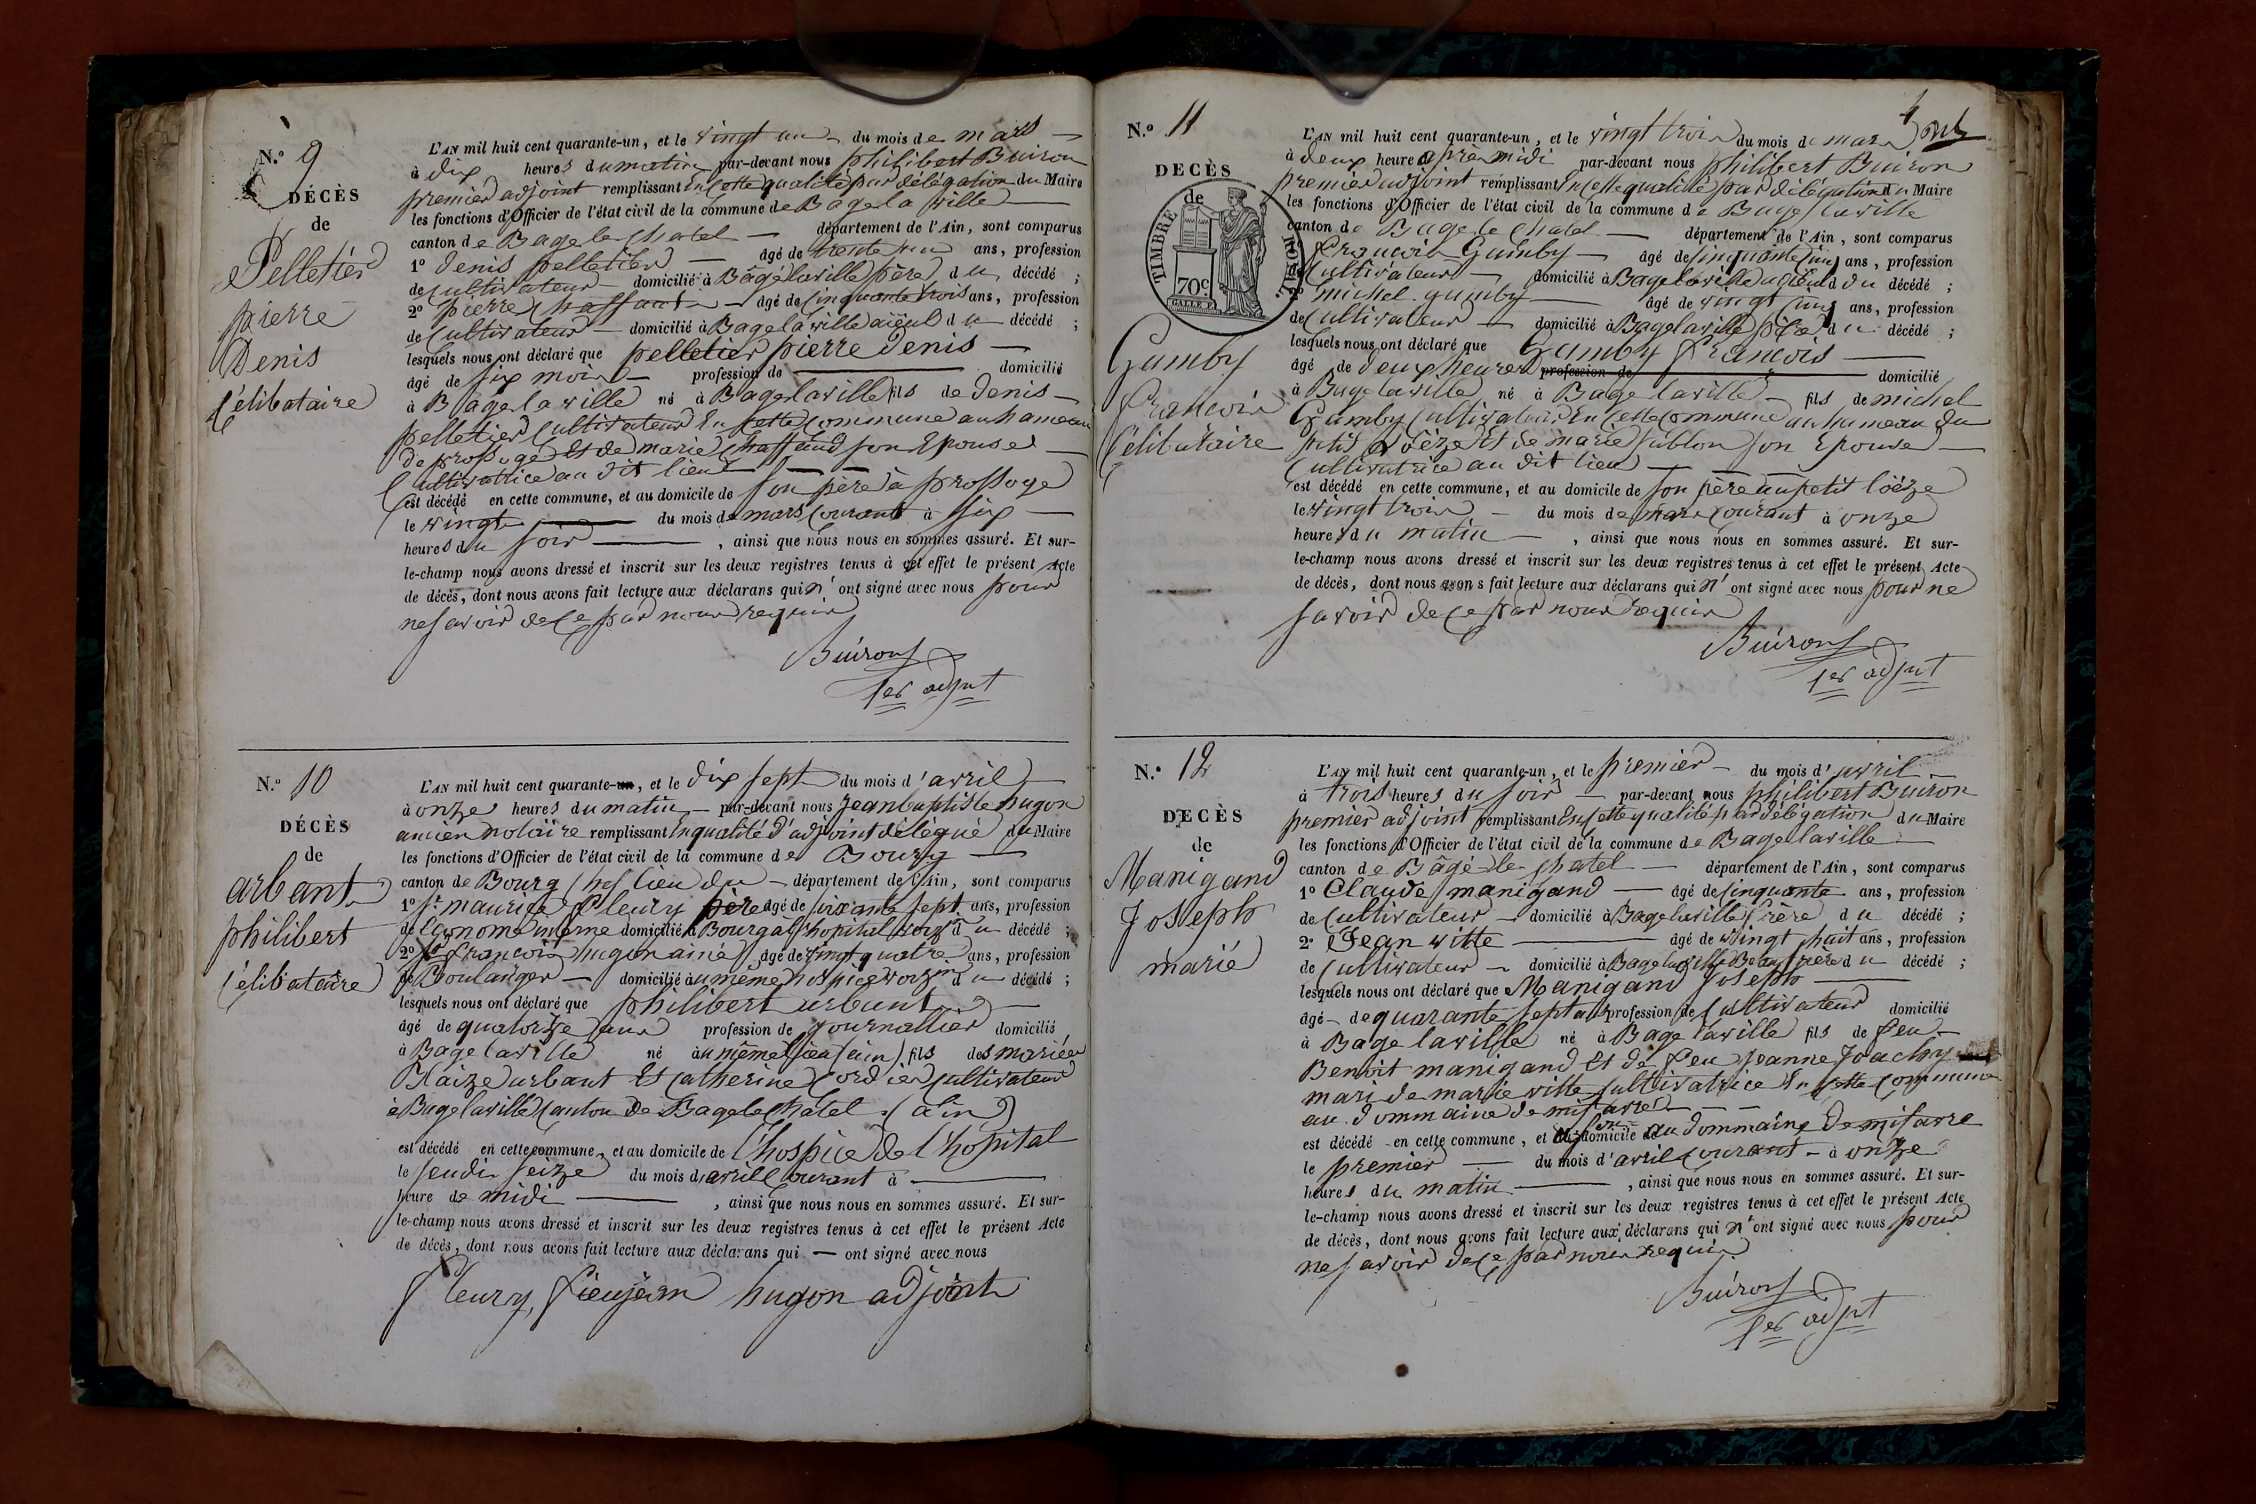 N.° 9
DÉCÈS
de
Pelletier
pierre
Denis
Célibataire
L'AN mil huit cent quarante-un, et le vingt un du mois de mars
à dix heures du matin par-devant nous philibert Buiron
premier adjoint remplissant En cette qualité par délégation du Maire
les fonctions d'Officier de l'état civil de la commune de Bagé la ville
canton de Bage le chatel département de l'Ain, sont comparus
1° Denis pelletier âgé de trente un ans, profession
de cultivateur domicilié à Bâgé laville père du décédé ;
2° pierre Chaffaud âgé de cinquante trois ans, profession
de Cultivateur domicilié à Bagé laville aïeul du décédé ;
lesquels nous ont déclaré que pelletier pierre Denis
âgé de six mois profession de domicilié
à Bâgé la ville né à Bagé laville fils de Denis
pelletier Cultivateur En cette Commune au hameau
de prossoge Et de marie Chaffaud son Epouse
Cultivatrice au dit lieu
est décédé en cette commune, et au domicile de son père à prossoge
le vingt du mois de mars Courant à six
heures du soir , ainsi que nous nous en sommes assuré. Et sur-
le-champ nous avons dressé et inscrit sur les deux registres tenus à cet effet le présent Acte
de décès, dont nous avons fait lecture aux déclarans qui n' ont signé avec nous pour
ne savoir de ce par nous requis
Buiron
1er adjnt
N.° 10
DÉCÈS
de
arbant
philibert
Célibataire
L'AN mil huit cent quarante-un, et le dix sept du mois d'avril
à onze heures du matin par-devant nous Jean baptiste hugon
ancien notaire remplissant En qualité d'adjoint délégué du Maire
les fonctions d'Officier de l'état civil de la commune de Bourg
canton de Bourg chef lieu du département de l'Ain, sont comparus
1° Sr maurice Fleury père âgé de soixante sept ans, profession
de Econome interne domicilié à Bourg à l'hopital voisin du décédé ;
2° Sr francois hugon ainé âgé de vingt quatre ans, profession
de Boulanger domicilié au même hospice voisin du décédé ;
lesquels nous ont déclaré que philibert arbant
âgé de quatorze ans profession de journallier domicilié
à Bagé laville né au même lieu (ain) fils des mariés
Blaize arbant Et Catherine Cordier Cultivateur
à Bagé laville Canton de Bagé le Châtel (ain)
est décédé en cette commune, et au domicile de l'hospice de l'hôpital
le jeudi seize du mois d'avril courant à
heure de midi , ainsi que nous nous en sommes assuré. Et sur-
le-champ nous avons dressé et inscrit sur les deux registres tenus à cet effet le présent Acte
de décès, dont nous avons fait lecture aux déclarans qui — ont signé avec nous
Fleury, hugon adjoint
4
N.° 11
DECÈS
de
TIMBRE ROYAL
70c
Gumby
francois
Célibataire
L'AN mil huit cent quarante-un, et le vingt trois du mois de mars
à deux heure après midi par-devant nous philibert Buiron
premier adjoint remplissant En cette qualité par délégation du Maire
les fonctions d'Officier de l'état civil de la commune de Bage laville
canton de Bage le Chatel département de l'Ain, sont comparus
francois Gumby âgé de cinquante cinq ans, profession
Cultivateur domicilié à Bagé laville aïeul du décédé ;
michel gumby âgé de vingt cinq ans, profession
de Cultivateur domicilié à Bagé laville père du décédé ;
lesquels nous ont déclaré que Gumby francois
âgé de deux heures profession de domicilié
à Bage laville né à Bage laville fils de michel
Gumby Cultivateur En cette Commune au hameau du
petit loëze Et de marie Sublon son Epouse
Cultivatrice au dit lieu
est décédé en cette commune, et au domicile de son père au petit loëze
le vingt trois du mois de mars courant à onze
heures du matin , ainsi que nous nous en sommes assuré. Et sur-
le-champ nous avons dressé et inscrit sur les deux registres tenus à cet effet le présent Acte
de décès, dont nous avons fait lecture aux déclarans qui n' ont signé avec nous pour ne
savoir de ce par nous requis
Buiron
1er adjnt
N.° 12
DECÈS
de
Manigand
Joseph
marié
L'AN mil huit cent quarante-un, et le premier du mois d'avril
à trois heures du soir par-devant nous philibert Buiron
premier adjoint remplissant En cette qualité par délégation du Maire
les fonctions d'Officier de l'état civil de la commune de Bage laville
canton de Bâgé le chatel département de l'Ain, sont comparus
1° Claude manigand âgé de cinquante ans, profession
de Cultivateur domicilié à Bage laville frère du décédé ;
2° Jean vitte âgé de vingt huit ans, profession
de Cultivateur domicilié à Bage laville Beau frère du décédé ;
lesquels nous ont déclaré que Manigand Joseph
âgé de quarante sept ans profession de Cultivateur domicilié
à Bage laville né à Bage laville fils de feu
Benoit manigand Et de feu Jeanne Joachy
mari de marie vitte Cultivatrice En cette Commune
au dommaine de misarre
est décédé en cette commune, et au domicile son au dommaine de misarre
le premier du mois d'avril courant à onze
heures du matin , ainsi que nous nous en sommes assuré. Et sur-
le-champ nous avons dressé et inscrit sur les deux registres tenus à cet effet le présent Acte
de décès, dont nous avons fait lecture aux déclarans qui n'ont signé avec nous pour
ne savoir de ce par nous requis
Buiron
1er adjnt